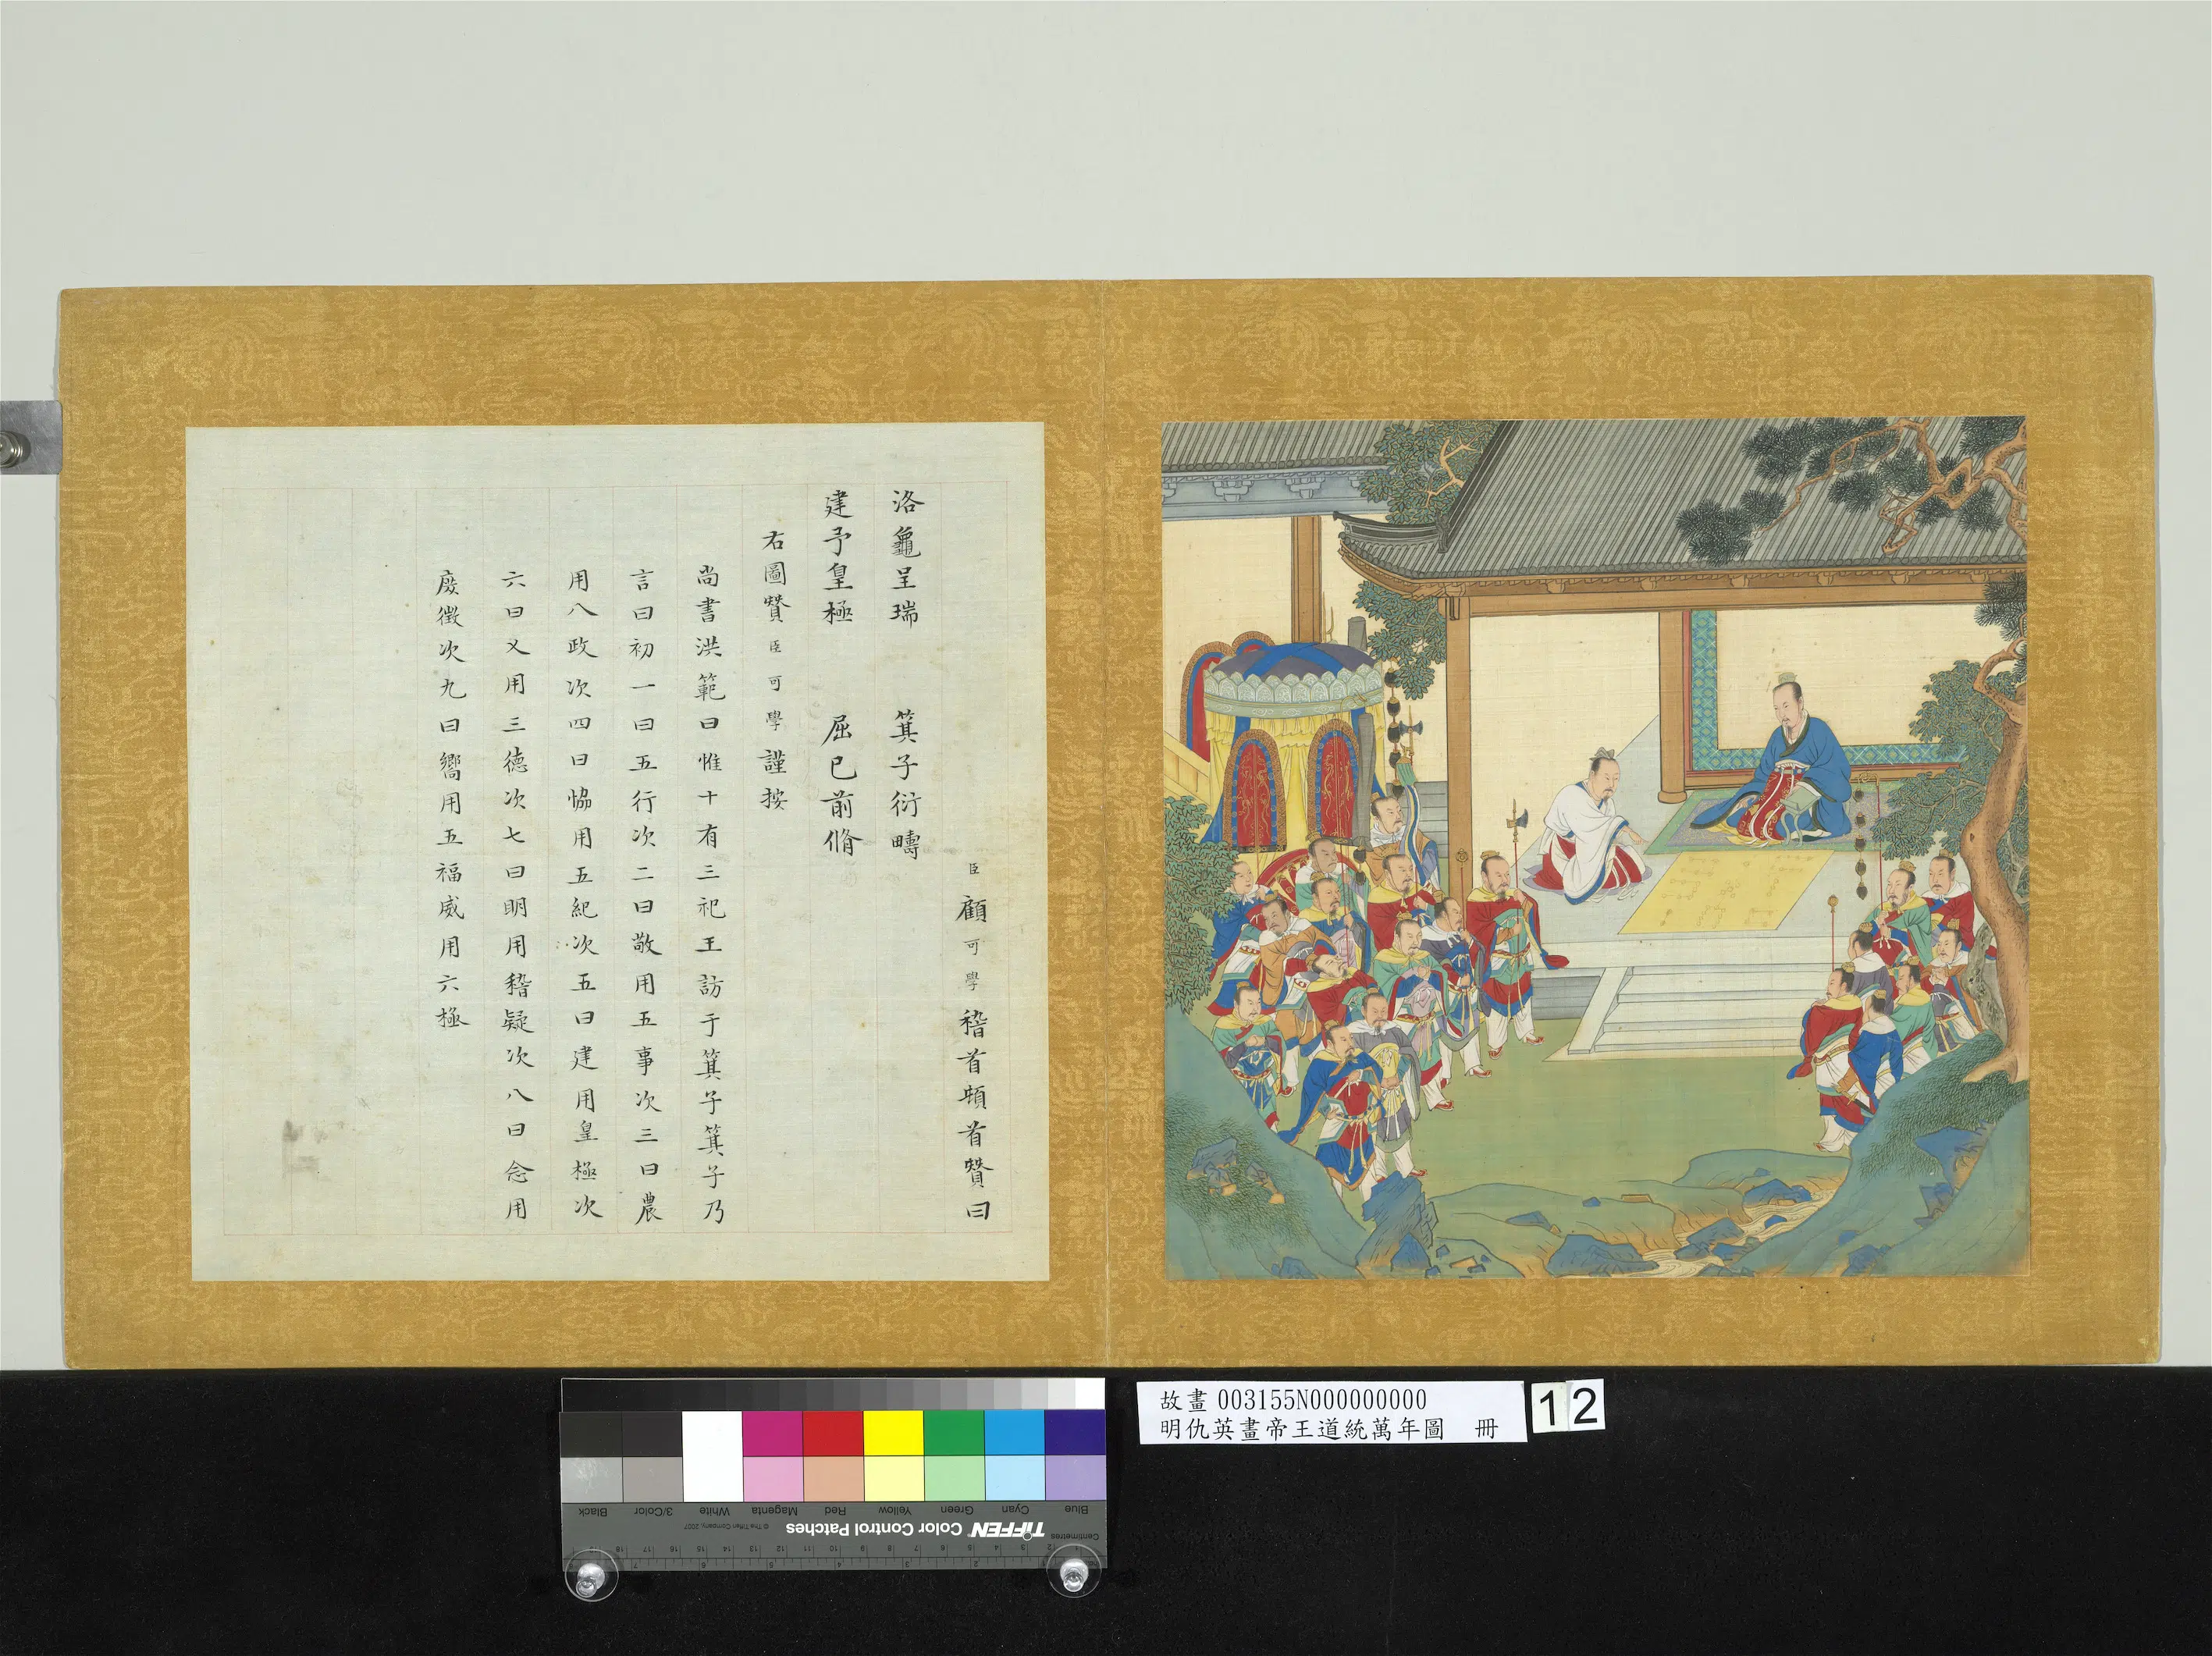 臣顧可學稽首頓首贊曰
洛龜呈瑞　箕子衍疇
建予皇極　屈已前脩
右圖贊臣可學謹按
尚書洪範曰惟十有三祀王訪于箕子箕子乃
言曰初一曰五行次二曰敬用五事次三曰農
用八政次四曰恊用五紀次五曰建用皇極次
六曰乂用三德次七曰明用稽疑次八曰念用
庶徵次九曰嚮用五福威用六極
故畫 003155N000000000
明仇英畫帝王道統萬年圖　冊
12
Blue Cyan Green Yellow Red Magenta White 3/Color Black
Centimetres TIFFEN Color Control Patches © The Tiffen Company, 2007
2 3 4 5 6 7 8 9 10 11 12 13 14 15 16 17 18
2 3 4 5 6 7